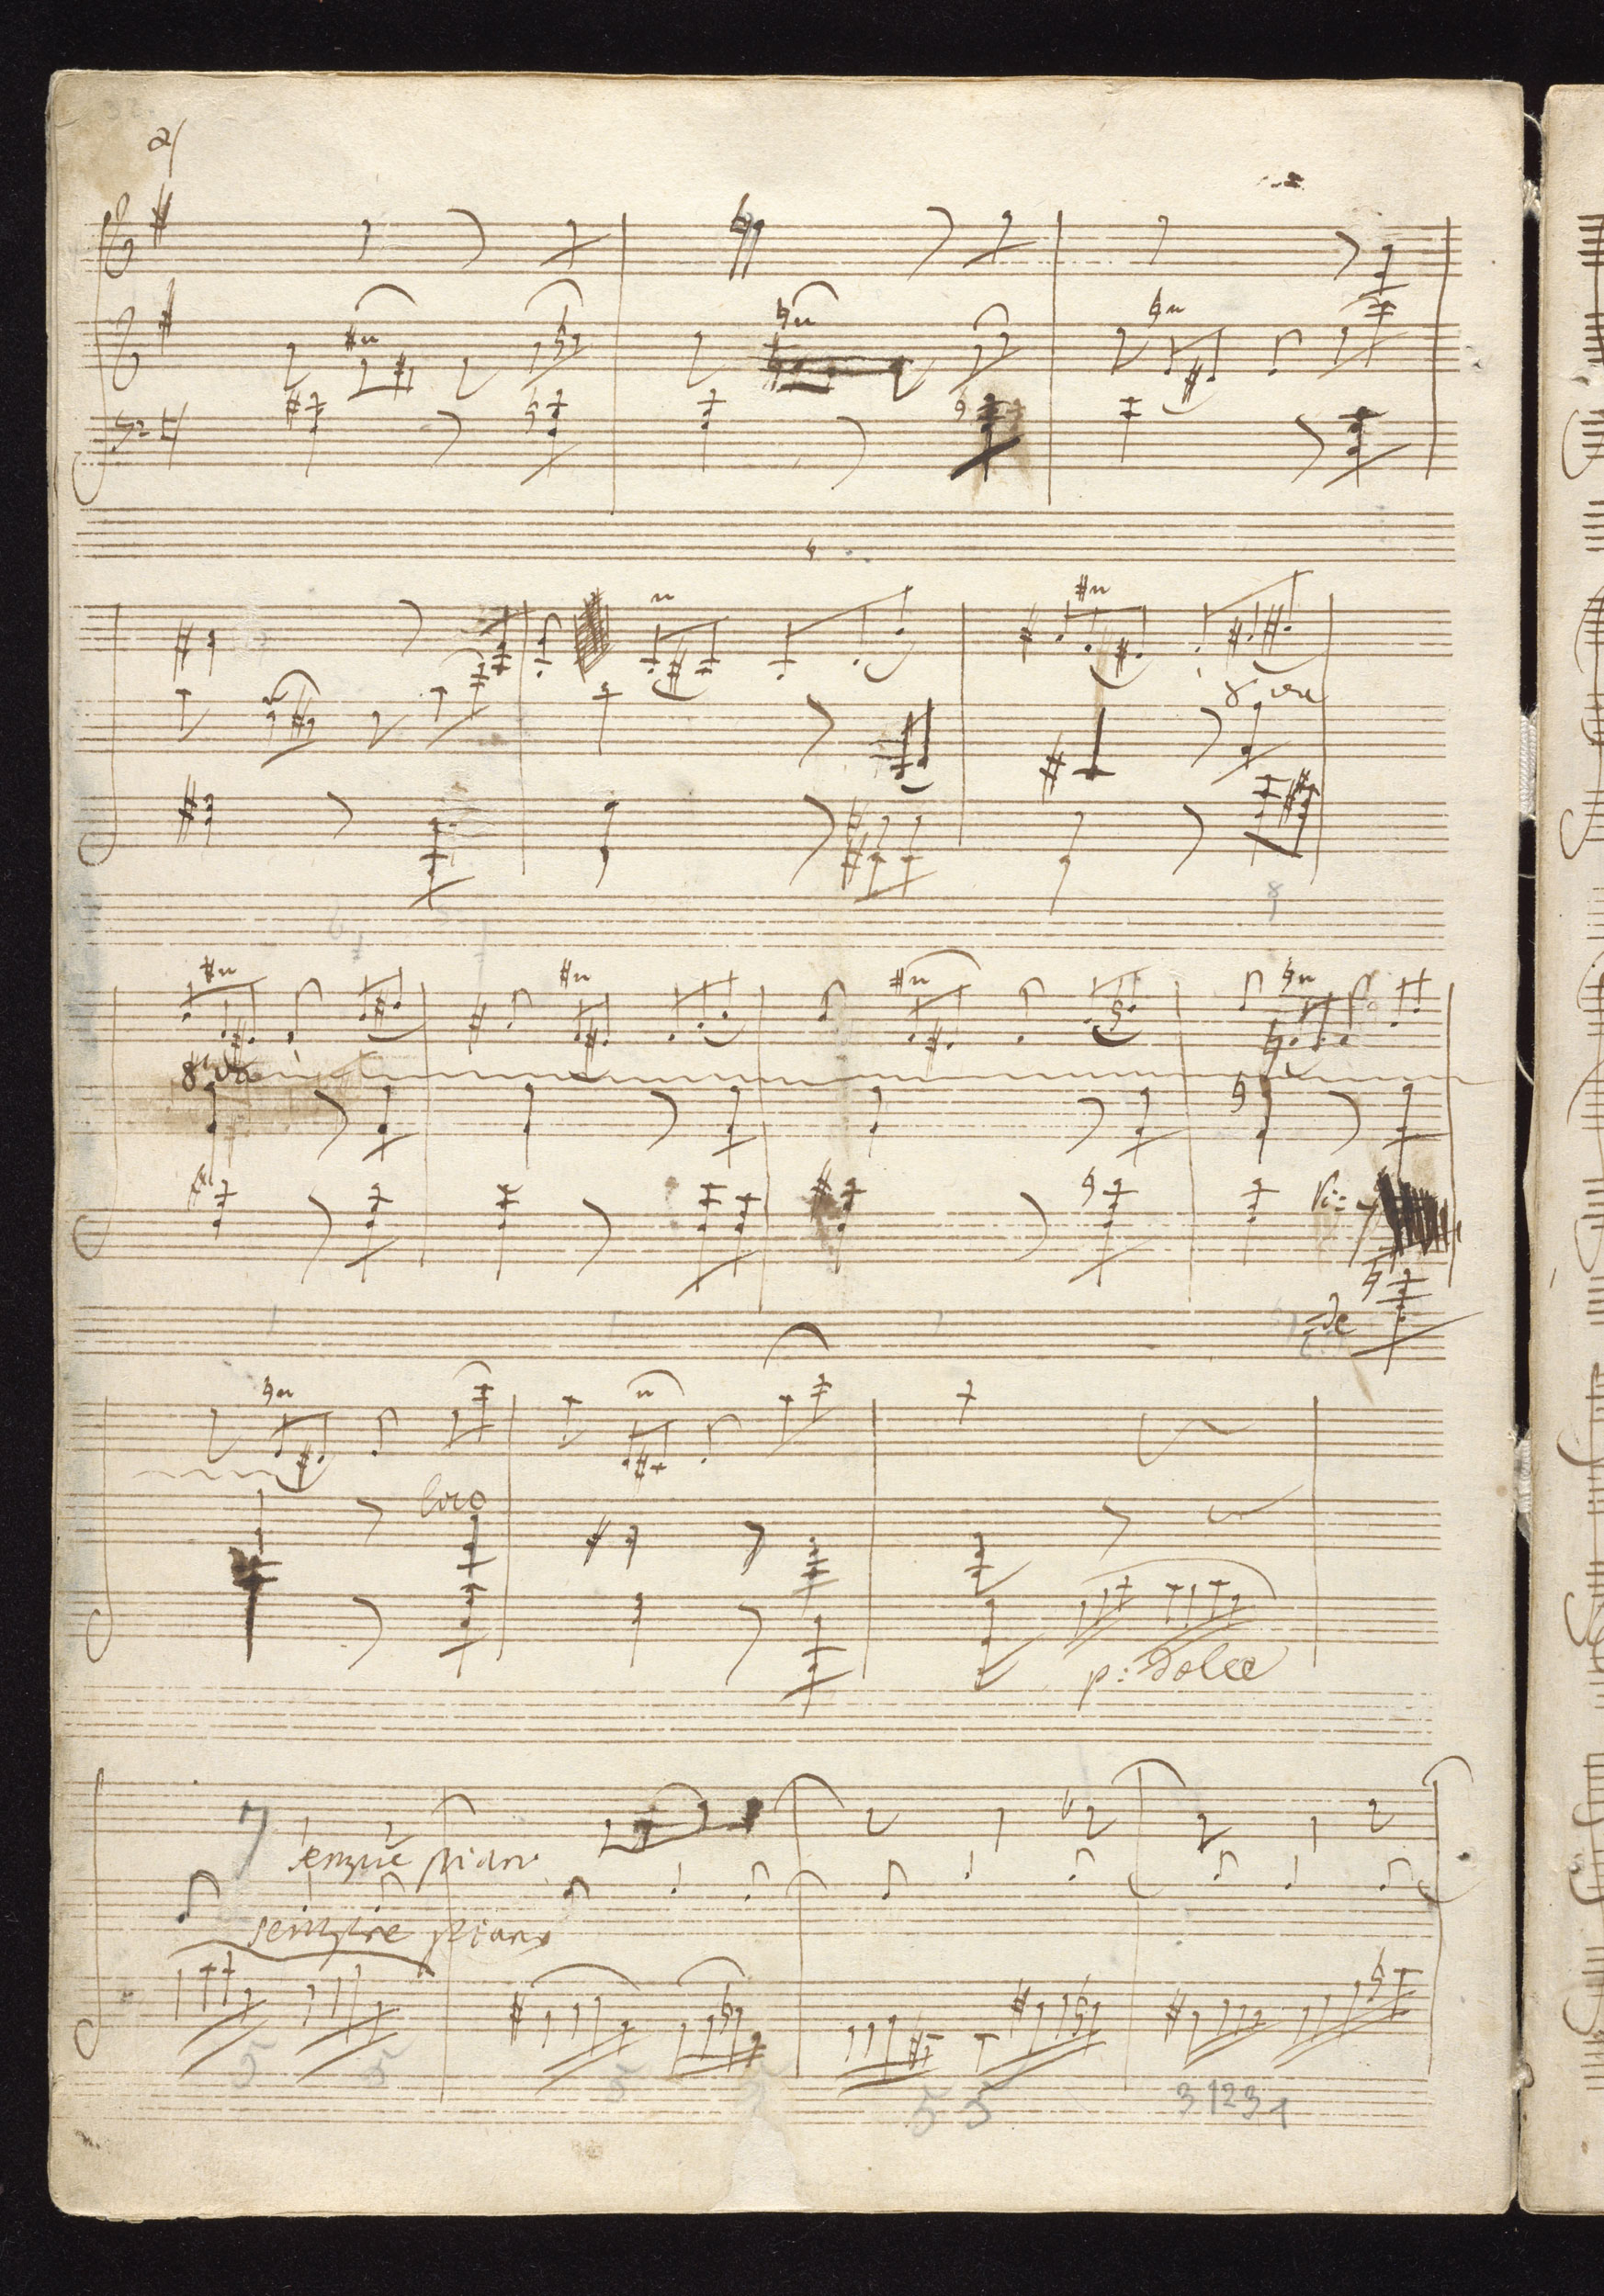 2
8va
8va
Vi=
=de
loco
p: dolce
sempre piano
sempre piano
5 5 5 5
5 5 3 1 2 3 1